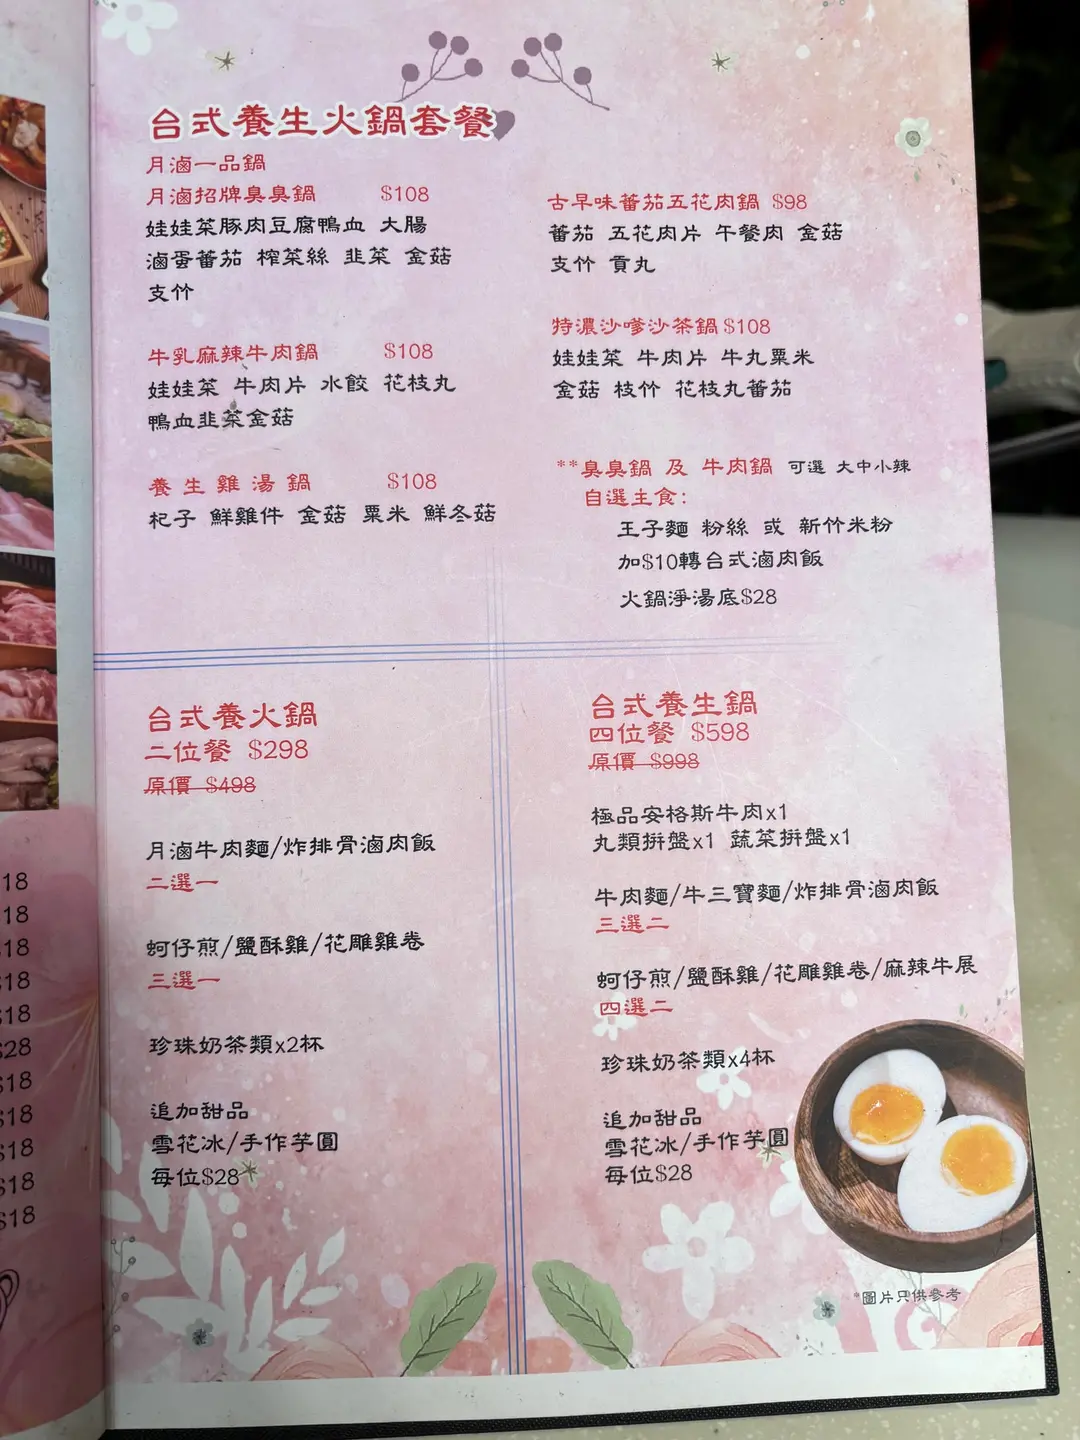 台式養生火鍋套餐
月滷一品鍋
月滷招牌臭臭鍋 $108
娃娃菜豚肉豆腐鴨血 大腸
滷蛋蕃茄 榨菜絲 韭菜 金菇
支竹
牛乳麻辣牛肉鍋 $108
娃娃菜 牛肉片 水餃 花枝丸
鴨血韭菜金菇
養生雞湯鍋 $108
杞子 鮮雞件 金菇 粟米 鮮冬菇
古早味蕃茄五花肉鍋 $98
蕃茄 五花肉片 午餐肉 金菇
支竹 貢丸
特濃沙嗲沙茶鍋 $108
娃娃菜 牛肉片 牛丸粟米
金菇 枝竹 花枝丸蕃茄
**臭臭鍋 及 牛肉鍋 可選 大中小辣
自選主食：
王子麵 粉絲 或 新竹米粉
加$10轉台式滷肉飯
火鍋淨湯底$28
台式養火鍋
二位餐 $298
原價 $498
月滷牛肉麵/炸排骨滷肉飯
二選一
蚵仔煎/鹽酥雞/花雕雞卷
三選一
珍珠奶茶類x2杯
追加甜品
雪花冰/手作芋圓
每位$28
台式養生鍋
四位餐 $598
原價 $998
極品安格斯牛肉x1
丸類拼盤x1 蔬菜拼盤x1
牛肉麵/牛三寶麵/炸排骨滷肉飯
三選二
蚵仔煎/鹽酥雞/花雕雞卷/麻辣牛展
四選二
珍珠奶茶類x4杯
追加甜品
雪花冰/手作芋圓
每位$28
*圖片只供參考
18
18
18
$18
$18
$28
$18
$18
$18
$18
$18